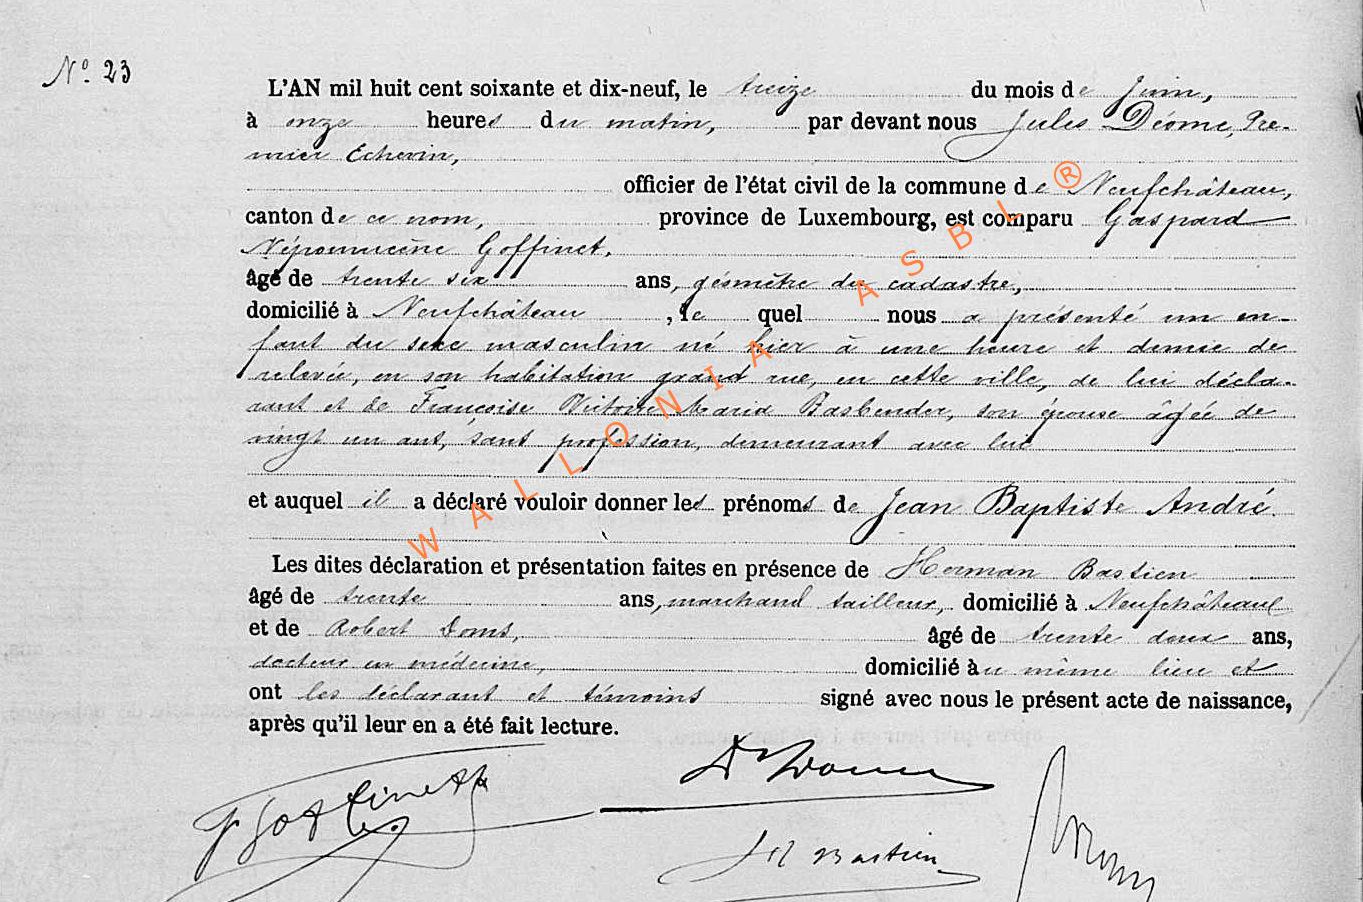 N° 23
L'AN mil huit cent soixante et dix-neuf, le treize du mois de Juin,
à onze heures du matin, par devant nous Jules Déome, Pre-
mier Echevin,
officier de l'état civil de la commune de Neufchâteau,
canton de ce nom, province de Luxembourg, est comparu Gaspard
Népomucène Goffinet,
âgé de trente six ans, géomètre du cadastre,
domicilié à Neufchâteau, le quel nous a présenté un en-
fant du sexe masculin né hier à une heure et demie de
relevée, en son habitation grand rue, en cette ville, de lui décla-
rant et de Françoise Victoire Maria Basbender, son épouse âgée de
vingt un ans, sans profession, demeurant avec lui
et auquel il a déclaré vouloir donner les prénoms de Jean Baptiste André.
Les dites déclaration et présentation faites en présence de Herman Bastien
âgé de trente ans, marchand tailleur, domicilié à Neufchâteau
et de Robert Doms, âgé de trente deux ans,
docteur en médecine, domicilié au même lieu et
ont les déclarant et témoins signé avec nous le présent acte de naissance,
après qu'il leur en a été fait lecture.
G Goffinet
H Bastien
WALLONIA ASBL ®